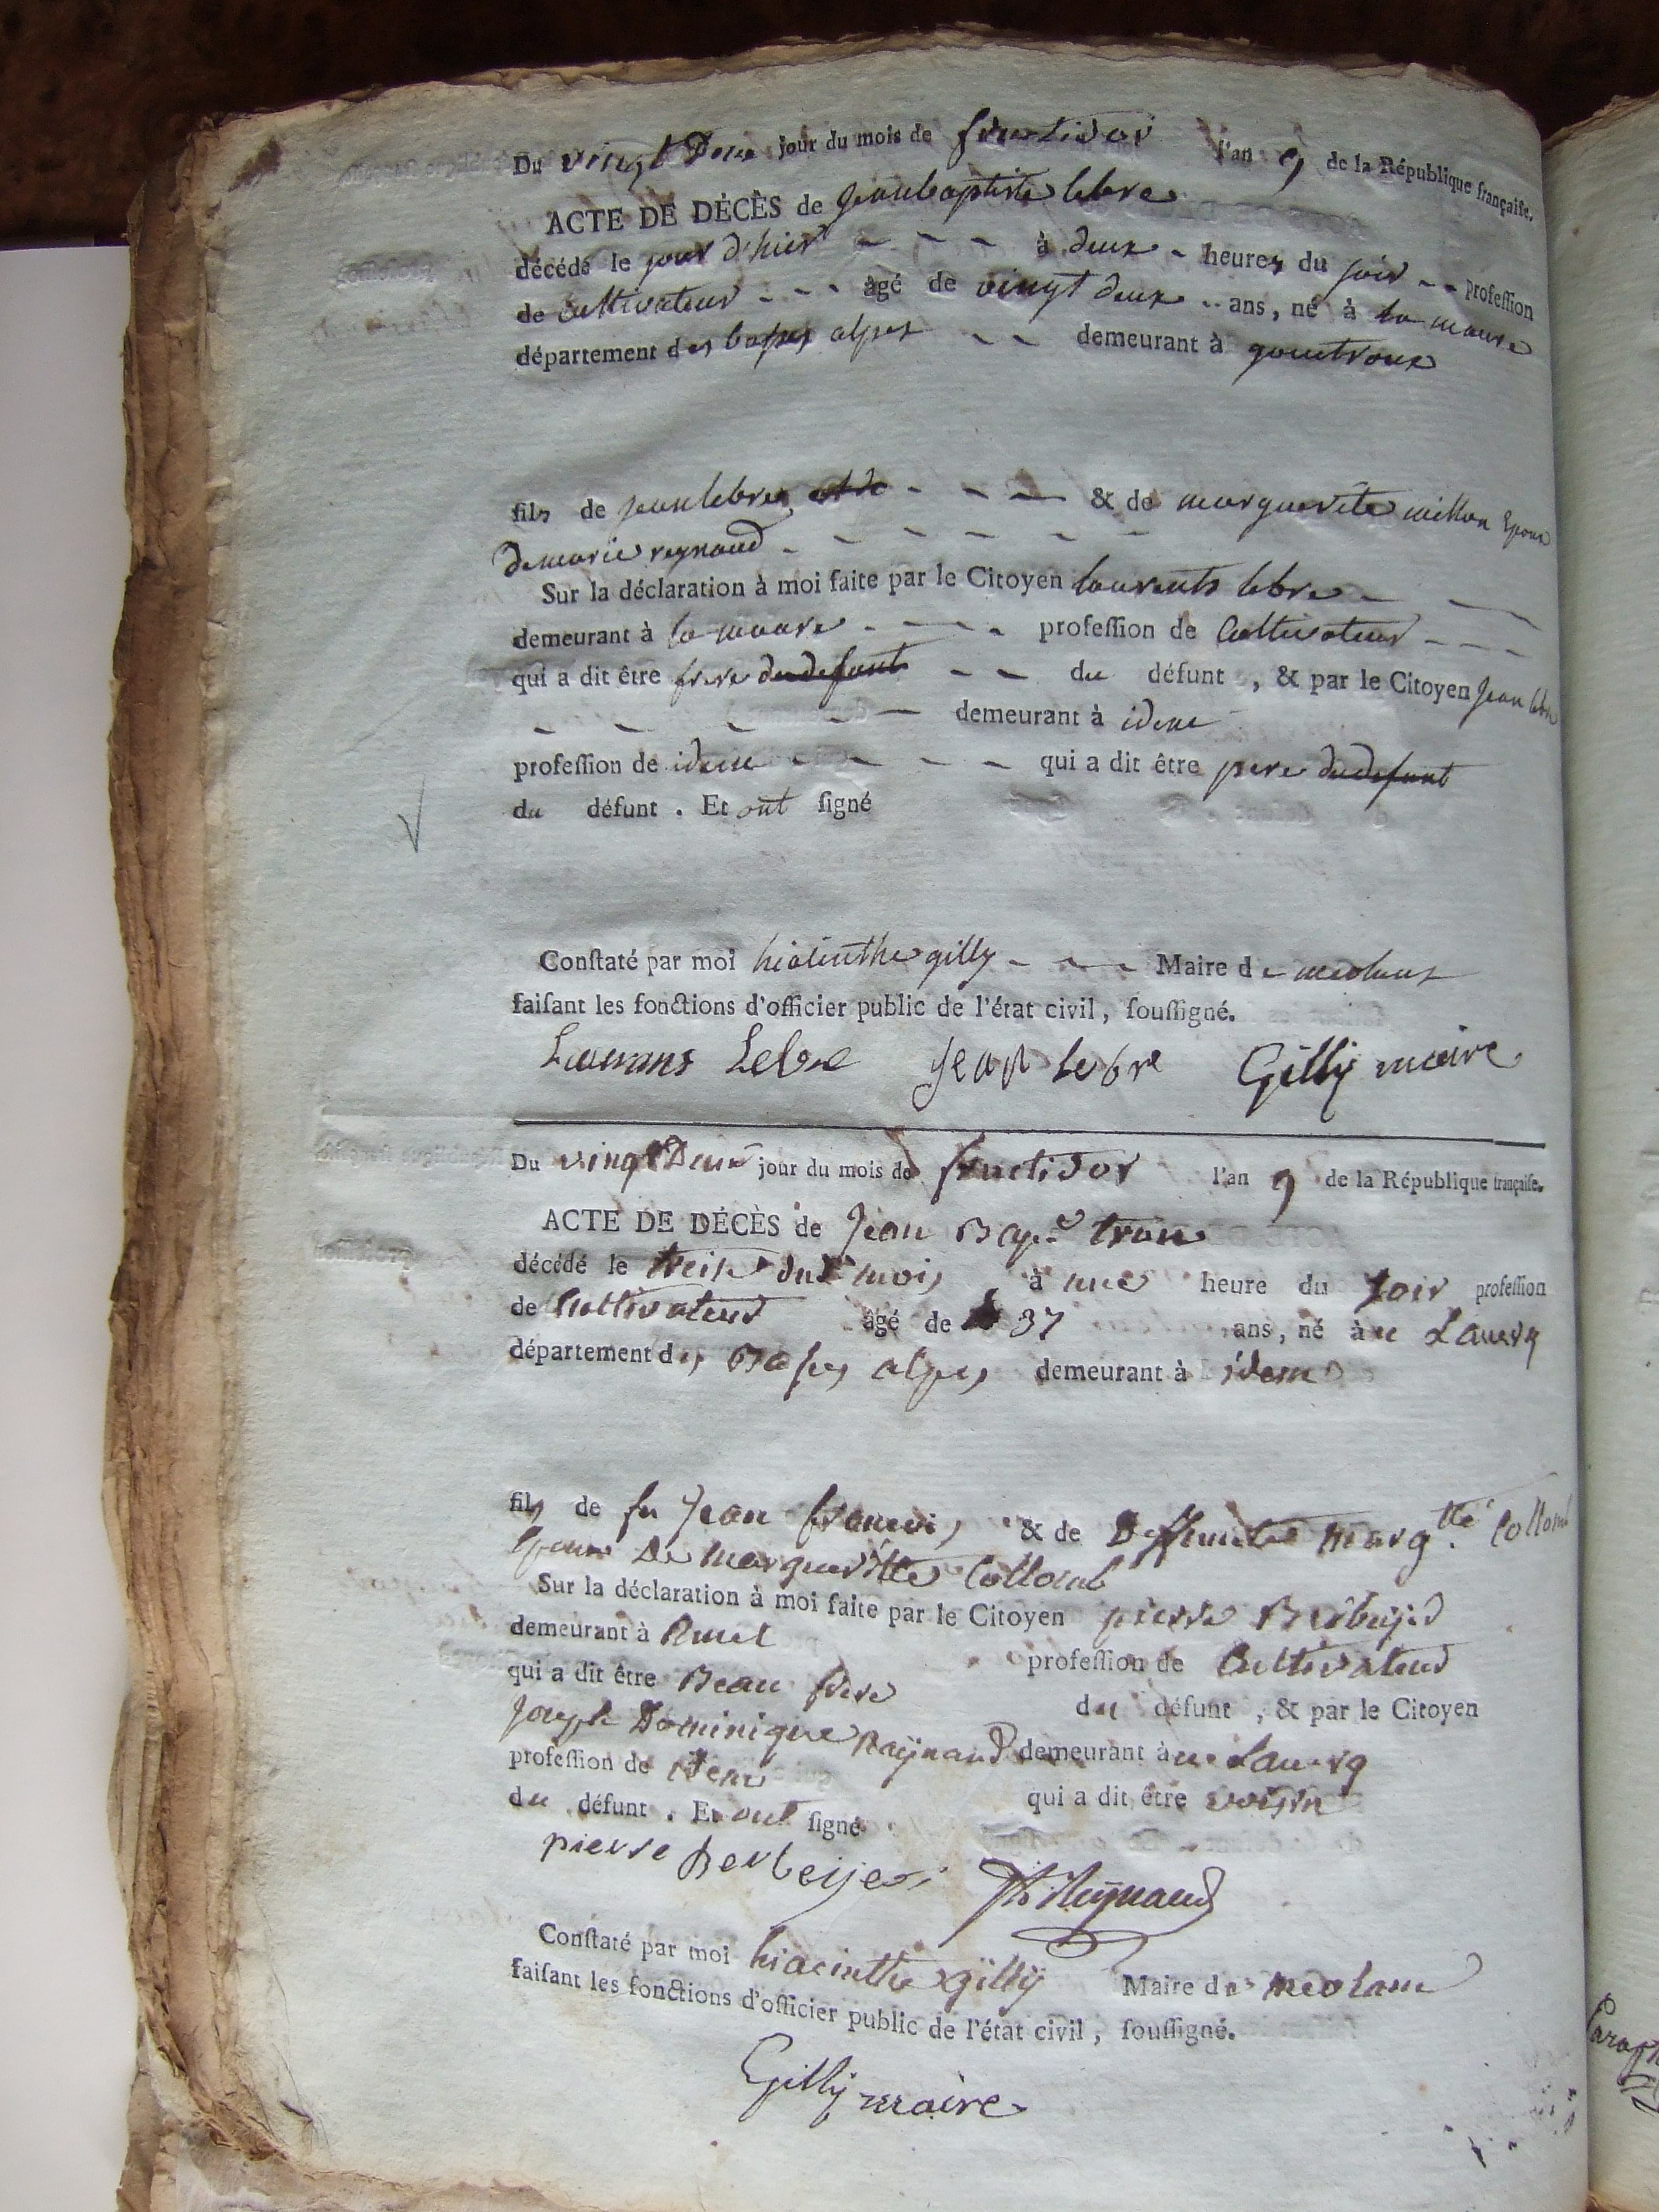 Du vingt Deux jour du mois de fructidor l'an 9 de la République françaiſe.
ACTE DE DÉCÈS de jean baptiste lebre
décédé le jour d'hier à deux heures du ſoir profeſſion
de cultivateur âgé de vingt deux ans, né à la maure
département des baſſes alpes demeurant à
fils de jean lebre & de marguerite millon Epoux
de marie reynaud
Sur la déclaration à moi faite par le Citoyen laurents lebre
demeurant à la maure profeſſion de Cultivateur
qui a dit être frere du defunt du défunt, & par le Citoyen jean lebre
demeurant à idem
profeſſion de idem qui a dit être pere du defunt
du défunt. Et ont ſigné
Conſtaté par moi hiacinthe gilly Maire de meolans
faiſant les fonctions d'officier public de l'état civil, ſouſſigné.
Laurans Lebre jean lebre Gilly maire
Du vingt Deux jour du mois de fructidor l'an 9 de la République françaiſe.
ACTE DE DÉCÈS de Jean Bap.te tron
décédé le treise du mois à une heure du ſoir profeſſion
de Cultivateur âgé de 37 ans, né à Lauerq
département des Baſſes alpes demeurant à idem
fils de fu Jean francois & de Deffunte marg.tte Collomb
Epoux De margueritte Collomb
Sur la déclaration à moi faite par le Citoyen pierre
demeurant à profeſſion de Cultivateur
qui a dit être Beau frere du défunt, & par le Citoyen
Joseph Dominique Raÿnaud demeurant à Lauerq
profeſſion de idem qui a dit être voisin
du défunt. Et ont ſigné
pierre Berbeijer Reÿnaud
Conſtaté par moi hiacinthe gillÿ Maire de meolans
faiſant les fonctions d'officier public de l'état civil, ſouſſigné.
Gillÿ maire